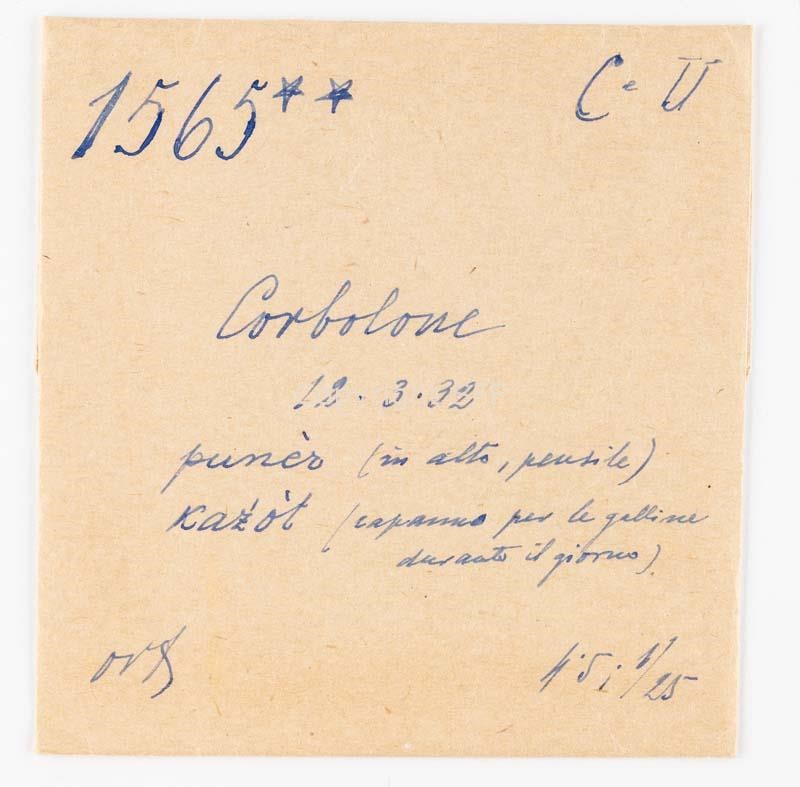 1565** Cᵉ II
Corbolone
12.3.32
punèr (in alto, pensile)
kaźòt (capanno per le galline
durante il giorno)
4.5;
/25